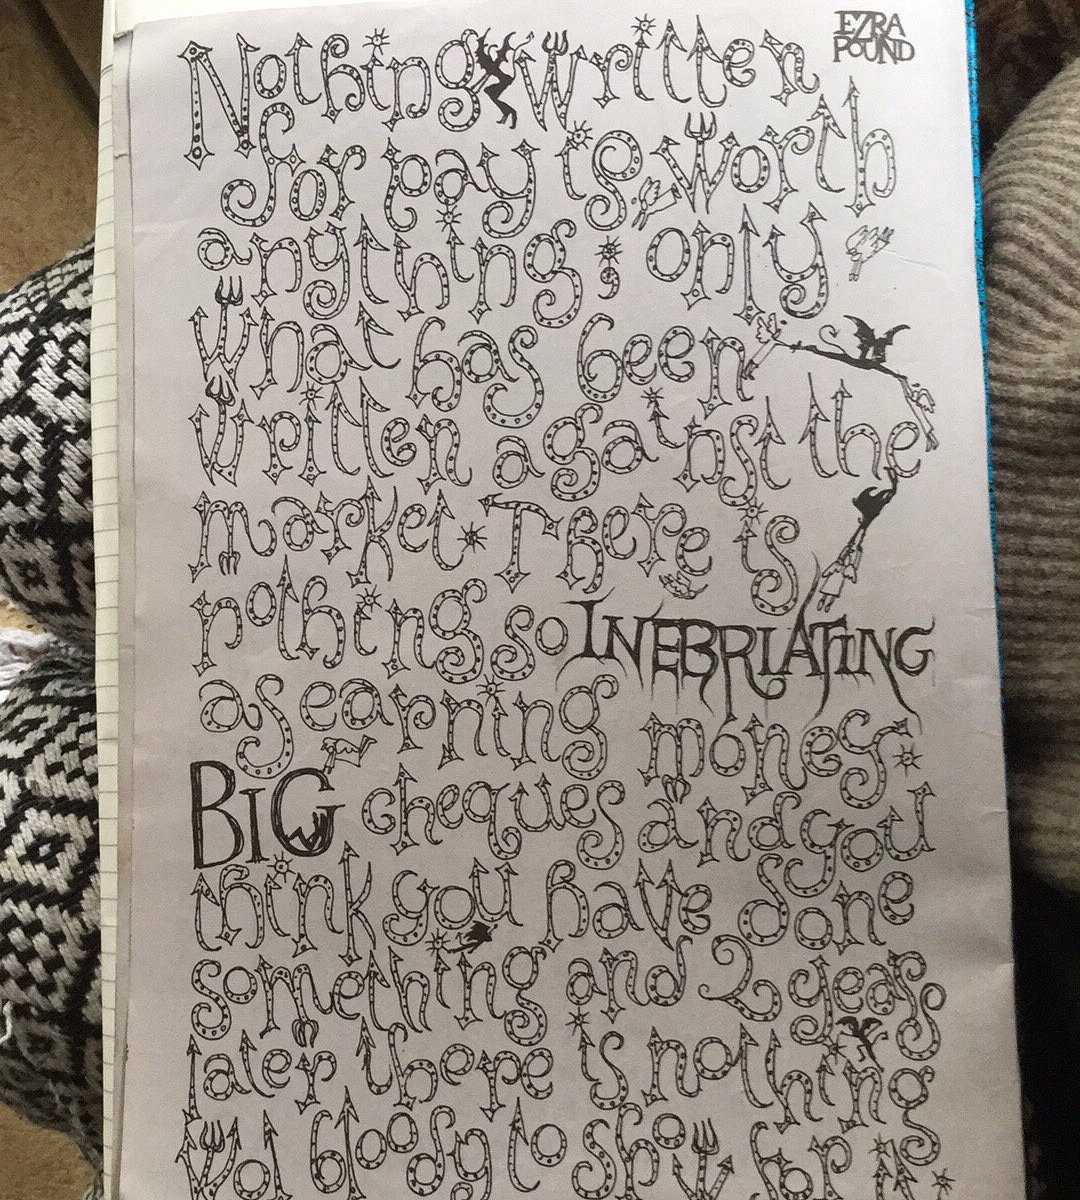 EZRA
POUND
Nothing written
for pay is worth
anything; only
what has been
written against the
market. There is
nothing so INEBRIATING
as earning money.
BIG cheques and you
think you have done
something and 2 years
later there is nothing
wot bloody to show for it